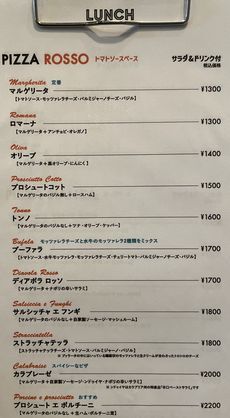 LUNCH
PIZZA ROSSO トマトソースベース サラダ&ドリンク付
税込価格
Margherita 定番
マルゲリータ ¥1300
【トマトソース・モッツァレラチーズ・パルミジャーノチーズ・バジル】
Romana
ロマーナ ¥1300
【マルゲリータ+アンチョビ・オレガノ】
Oliva
オリーブ ¥1400
【マルゲリータ+黒オリーブ・にんにく】
Prosciutto Cotto
プロシュートコット ¥1500
【マルゲリータのバジル無し+ロースハム】
Tonno
トンノ ¥1600
【マルゲリータのバジルなし+ツナ・オリーブ・ケッパー】
Bufala モッツァレラチーズと水牛のモッツァレラ2種類をミックス
ブーファラ ¥1700
【トマトソース・水牛モッツァレラ・モッツァレラチーズ・チェリートマト・パルミジャーノチーズ・バジル】
Diavola Rosso
ディアボラ ロッソ ¥1700
【マルゲリータ+ナポリの辛いサラミ】
Salsiccia e Funghi
サルシッチャ エ フンギ ¥1800
【マルゲリータ+自家製ソーセージ・マッシュルーム】
Stracciatella
ストラッチャテッラ ¥1800
【ストラッチャテッラチーズ・トマトソース・バジル・オリーブ】
Calabraise スパイシーなピザ
カラブレーゼ ¥2000
【マルゲリータ+自家製ソーセージ・ンドゥイヤ・ナポリの辛いサラミ】
Porcino e prosciutto おすすめ
プロシュート エ ポルチーニ ¥2200
【マルゲリータのバジルなし+生ハム・ポルチーニ茸】